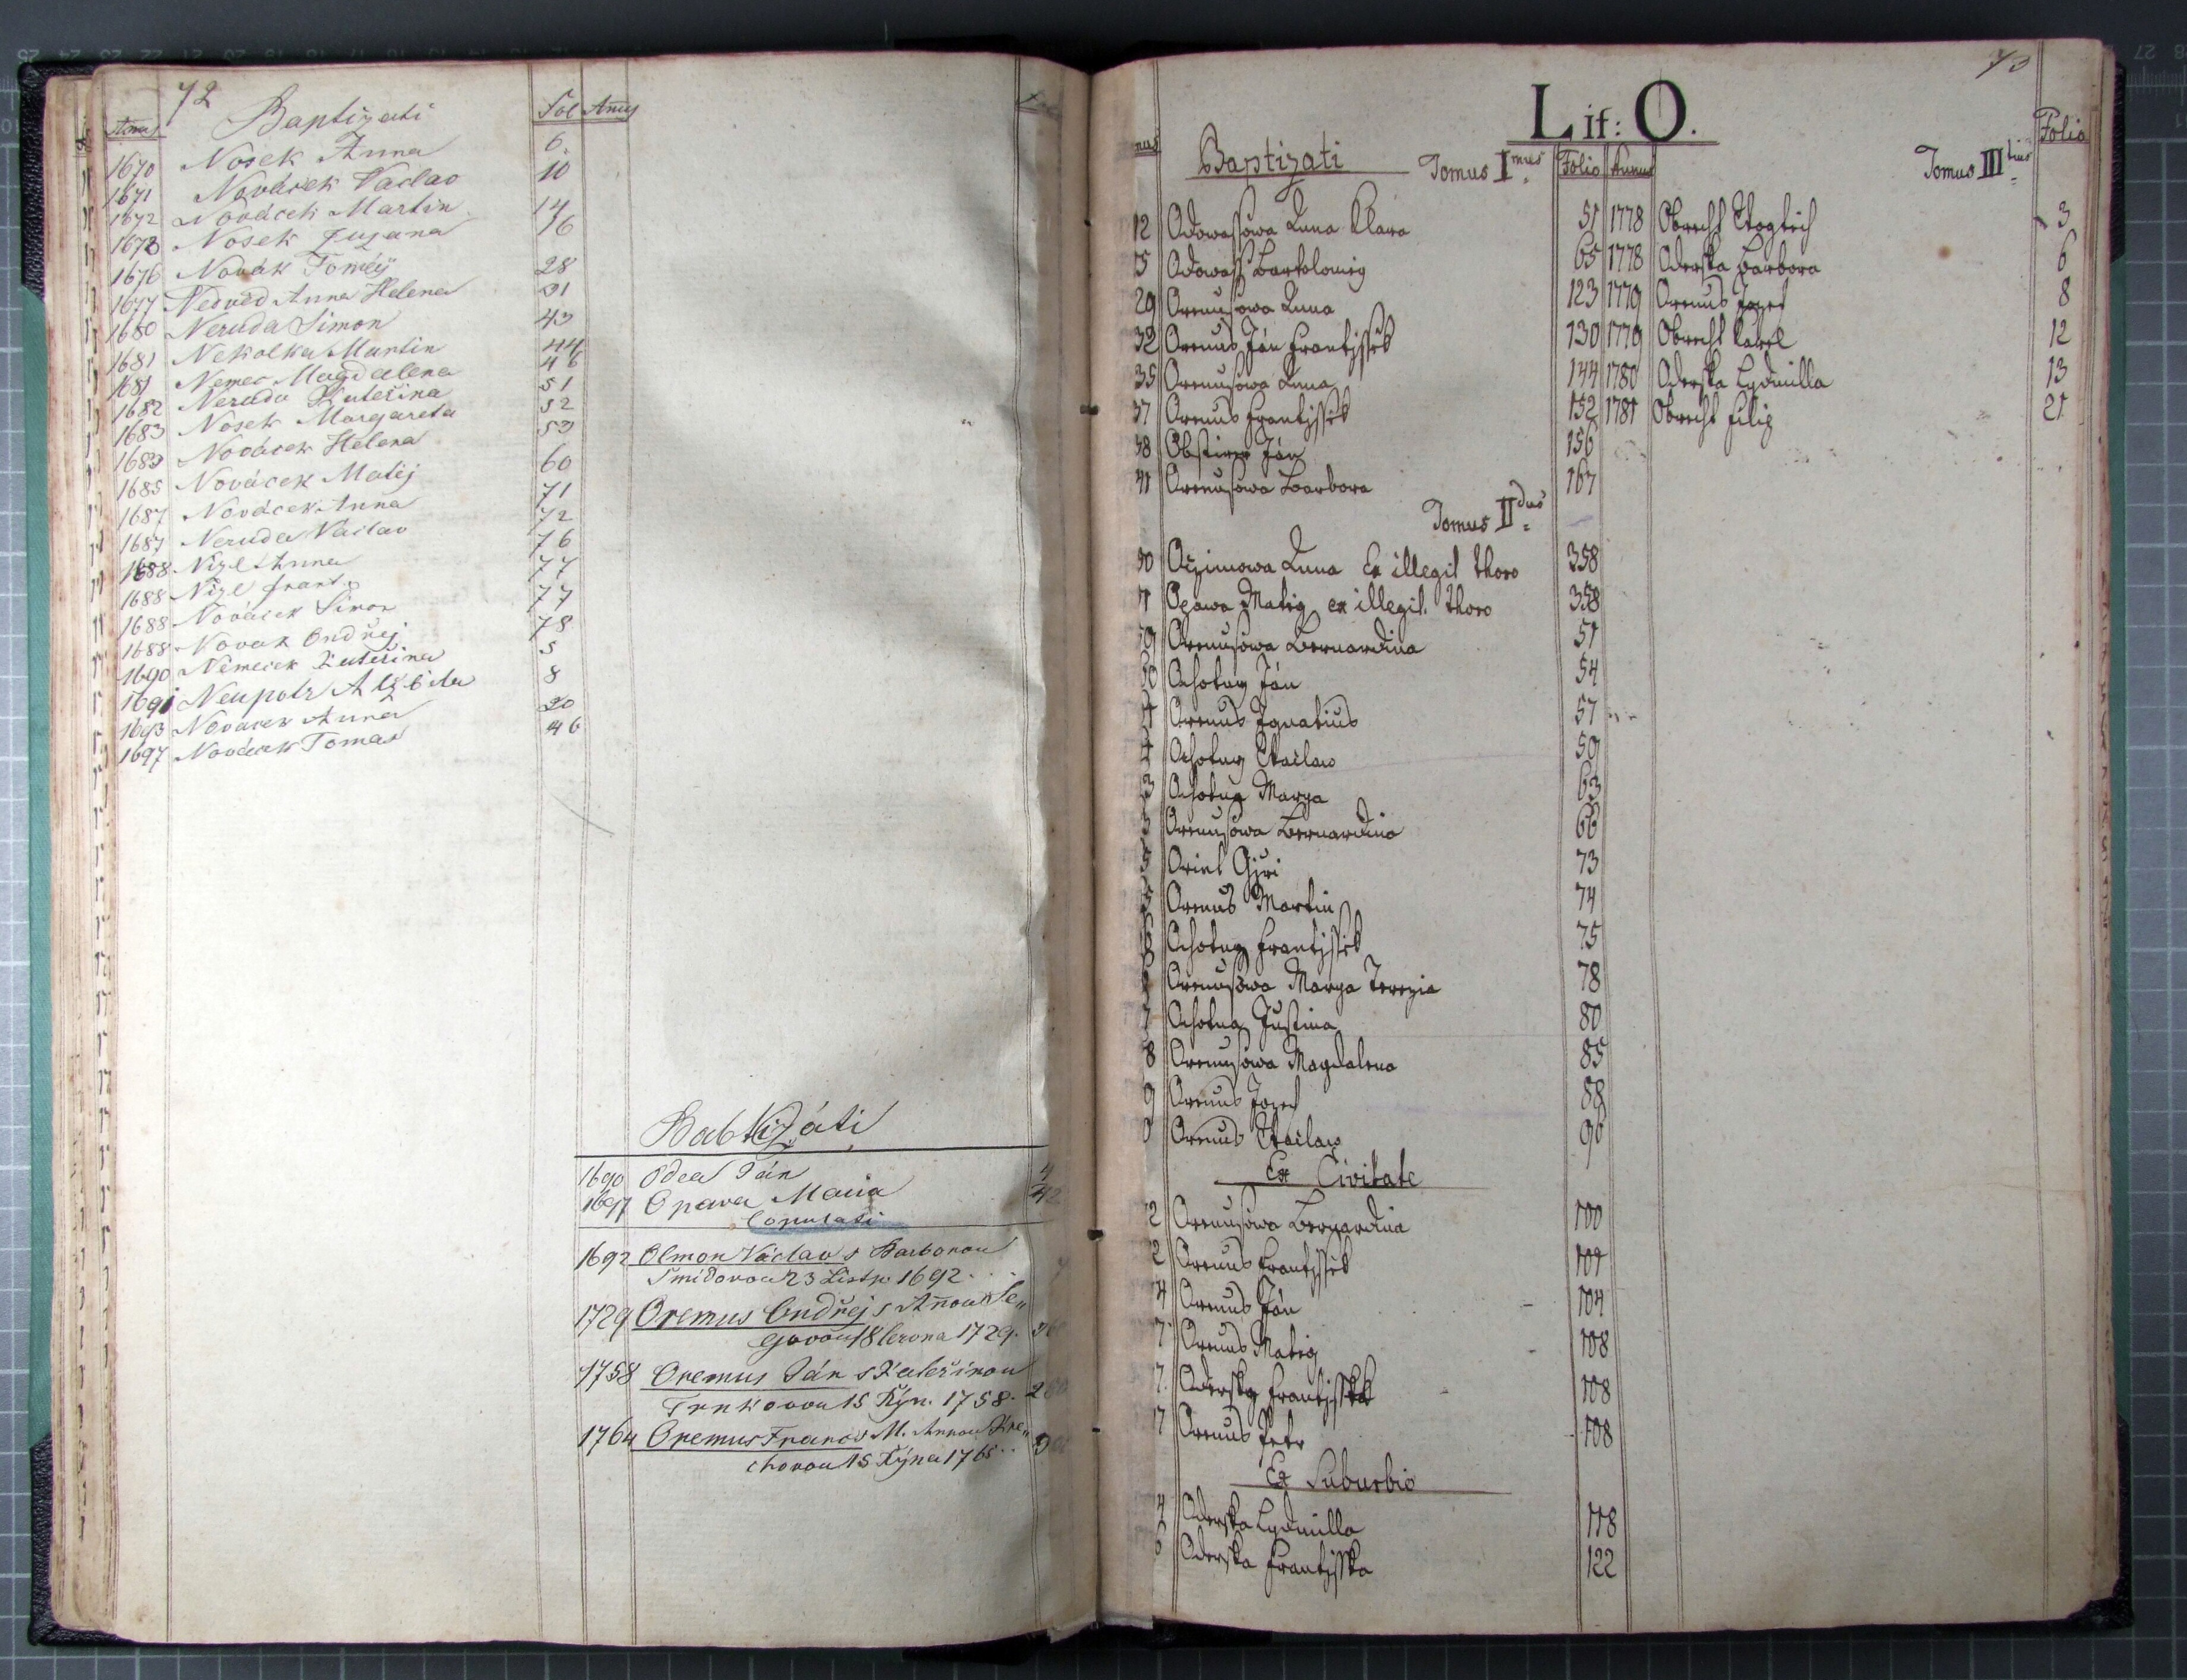 72
Annus Baptizati Fol Annus
1670 Nosek Anna 6.
1671 Nováček Vaclav 10
1672 Nováček Martin 14
1673 Nosek Zuzana 16
1676 Novák Toměÿ 28
1677 Nedvěd Anna Helena 31
1680 Neruda Simon 43
1681 Nekolka Martin 44
1681 Nemec Magdalena 46
1682 Neruda Kateřina 51
1683 Nosek Margareta 52
1683 Nováček Helena 53
1685 Nováček Matěj 60
1687 Nováček Anna 71
1687 Neruda Vaclav 72
1688 Nizl Anna 76
1688 Nizl frant. 77
1688 Nováček Simon 77
1688 Novak Ondřej 78
1690 Němeček Kateřina 5
1691 Neupotr Alžběta 8
1693 Nováček Anna 20
1697 Nováček Tomas 46
Babtizáti
1690 Odea Ján 4
1697 Opava Maria 42
Copulati
1692 Olmon Václav s Barborou
Smidovou 23 Listp. 1692.
1729 Oremus Ondřej s Annou Se„
govou 18 Cerona 1729.
1758 Oremus Ján s Kateřinou
Trnkovou 15 Říjn. 1758.
1764 Oremus Franc s M. Annou Kre„
chovou 15 Října 1765
73
Lit: O.
nus Baptizati Tomus I mus Folio Annus Tomus III tius Folio
12 Odowassowa Anna Klara 51 1778 Obrecht Wogtěch 3
15 Odowass Bartoloměg 65 1778 Oderska Barbora 6
29 Oremusowa Anna 123 1779 Oremus Jozef 8
32 Oremus Ján Frantissek 130 1779 Obrecht Karel 12
35 Oremusowa Anna 144 1780 Oderska Lydmilla 13
37 Oremus Frantissek 152 1781 Obrecht Filip 21
38 Ján 156
41 Oremusowa Barbora 167
Tomus II dus
30 Anna Ex illegit thoro 358
Opawa Matěg ex illegit. thoro 358
Oremusowa Bernardina 51
Ochotny Ján 54
Oremus Ignatius 57
Ochotny Waclaw 59
3 Ochotna Marya 63
3 Oremusowa Bernardina 66
5 Oriel Giri 73
5 Oremus Martin 74
6 Ochotny Frantissek 75
Oremusowa Marya Terezia 78
7 Ochotna Justina 80
8 Oremusowa Magdalena 85
9 Oremus Jozef 88
Oremus Waclaw 90
Ex Civitate
2 Oremusowa Bernardina 100
2 Oremus Frantissek 101
4 Oremus Ján 104
7 Oremus Matěg 108
7. Odersky Frantissek 108
17 Oremus Petr 108
Ex Suburbio
4 Oderska Lydmilla 118
6 Oderska Frantisska 122